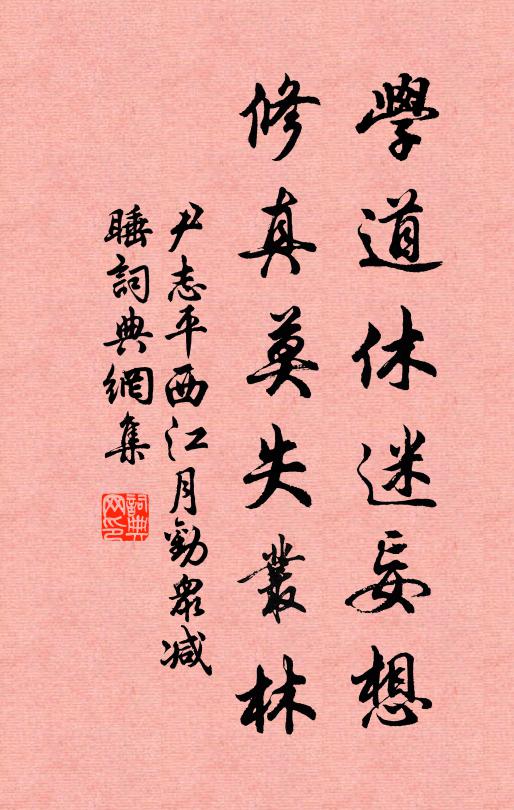 學道休迷妄想
修真莫失叢林
尹志平西江月勸眾減
睡詞典網集
詞典
网印